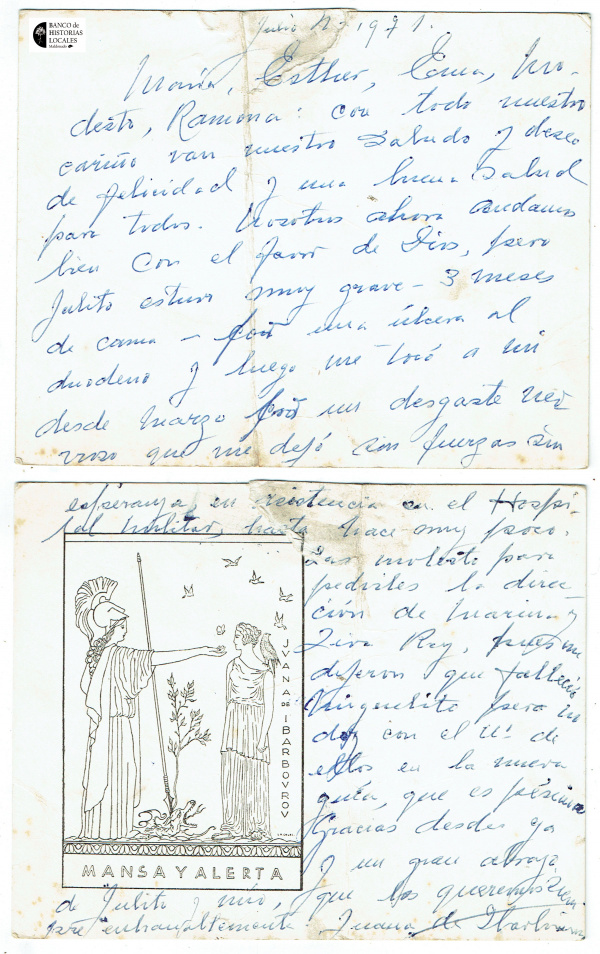 BANCO de
HISTORIAS
LOCALES
Maldonado
Julio 1971.
María, Esther, Ema, Mo-
desto, Ramona: con todo nuestro
cariño van nuestro saludo y deseo
de felicidad y una buena salud
para todos. Nosotros ahora andamos
bien con el favor de Dios, pero
Julito estuvo muy grave - 3 meses
de cama - una úlcera al
duodeno y luego me tocó a mí
desde marzo un desgaste ner
vioso que me dejó sin fuerzas sin
esperanza, en asistencia en el Hospi-
tal Militar, hasta hace muy poco.
Las molesto para
pedirles la direc-
ción de Marina y
Rey, pues me
dijeron que falleció
Miguelito pero no
doy con el nº de
ellos en la nueva
guía, que es pésima
Gracias desde ya
y un gran abrazo
de Julito y mío, que los queremos siem
pre entrañablemente. Juana de Ibarbourou
JVANA DE IBARBOVROV
MANSA Y ALERTA